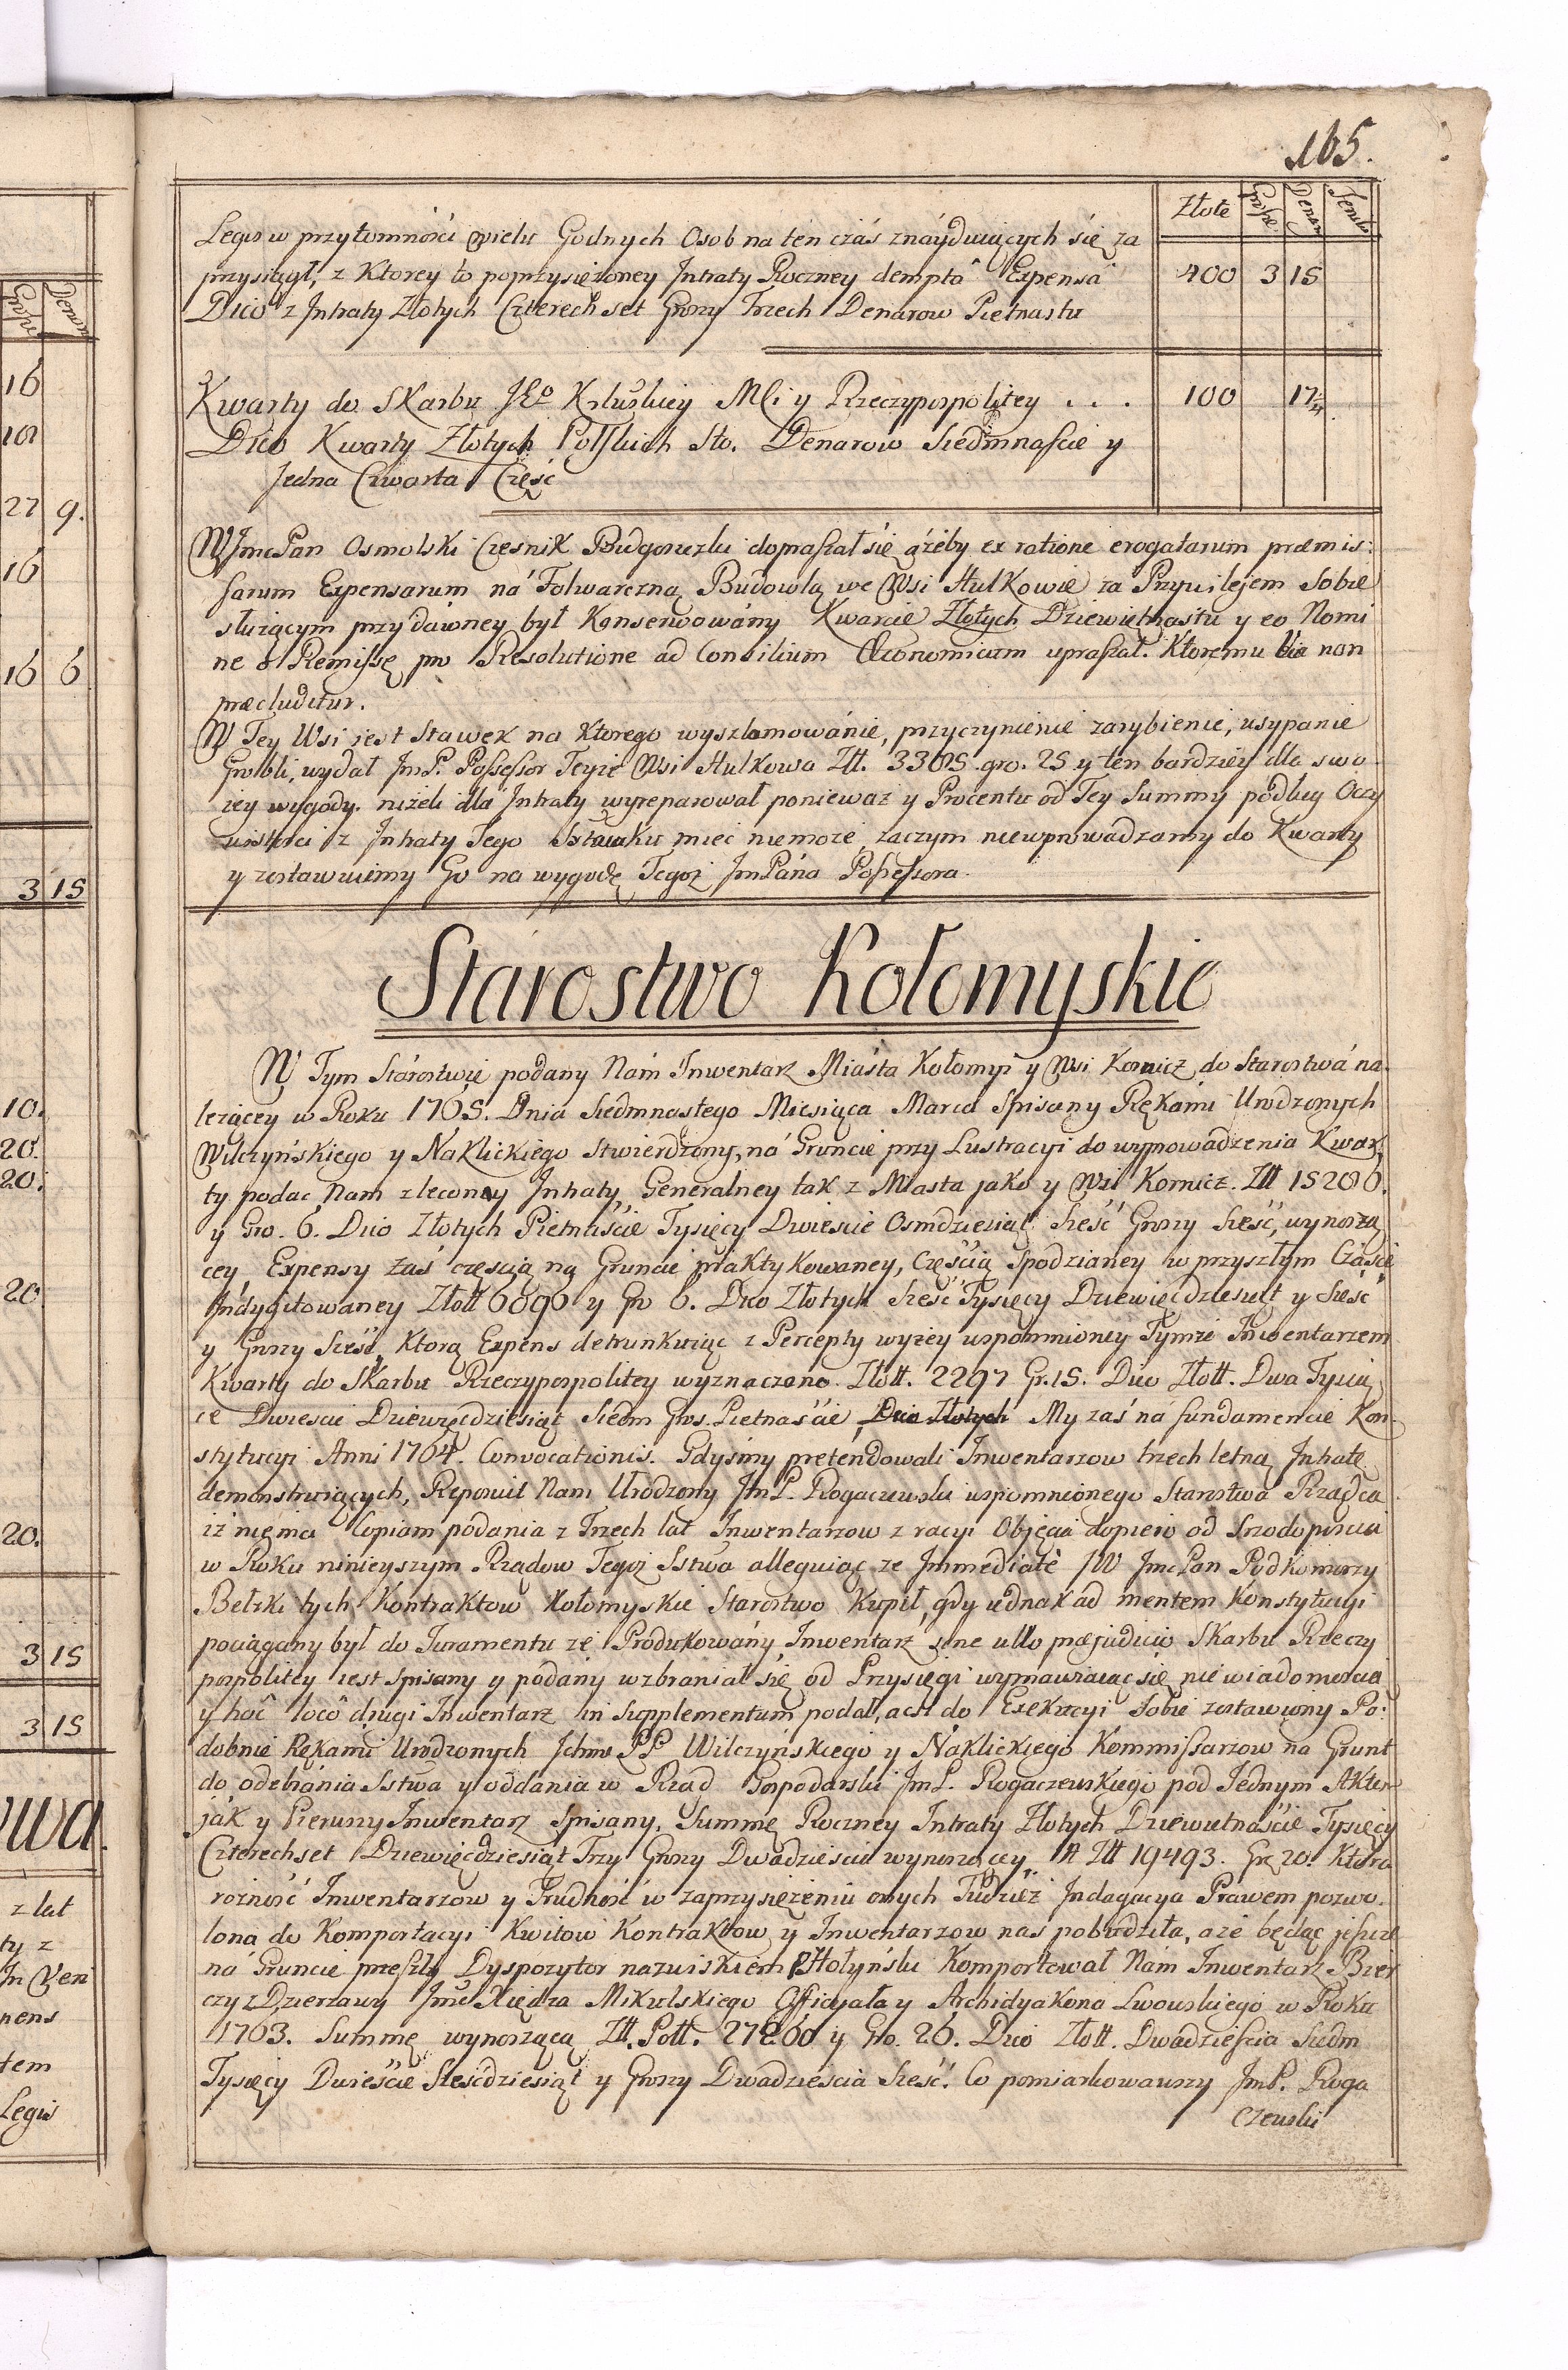 165.
Złote Grosze Denar
Legis w przytomności wielu Godnych Osob na ten czás znáyduiących się za
przysiągł, z Ktorey to poprzysiężoney Intraty Roczney dempta Expensa 400 3 15
Dico z Intraty Złotych Czterech set Groszy Trzech Denarow Piętnastu
Kwarty do Skarbu JKo Krolewskiey Mci y Rzeczypospolitey . . . 100 17¼
Dico Kwarty Złotych Polskich Sto. Denarow Siedmnascie y
Jedna Czwarta Część
W JmcPan Osmolski Czesnik Bidgoszczki dopraszał się ażeby ex ratione erogatarum præmis:
sarum Expensarum ná Folwarczną Budowlą we Wsi Hulkowie za Przywilejem Sobie
służącym przy dawney był Konserwowány Kwarcie Złotych Dziewiętnastu y eo Nomi
ne o Remissę pro Resolutione ad Consilium Œconomicum upraszał. Ktoremu Via non
præcluditur.
W Tey Wsi jest Stawek na Ktorego wyszlamowánie, przyczynienie zarybienie, usypanie
Grobli, wydał JmP. Possessor Teyże Wsi Hulkowa Złt. 3305. gro. 25 y ten bardziey dla swo
iey wygody. niżeli dla Intraty wyreparował poniewaz y Procentu od Tey Summy podług Oczy
wistości z Intraty Tego Stawku mieć niemoże, zaczym niewprowadzamy do Kwarty
y zostawuiemy Go na wygodę Tegoż JmPána Possessora.
Starostwo Kołomyskie
W Tym Stárostwie podany Nám Inwentarz Miásta Kołomyi y Wsi Kornicz do Starostwá na
leżącey w Roku 1765. Dnia Siedmnastego Miesiąca Marca Spisany Rękami Urodzonych
Wilczyńskiego y Náklickiego Stwierdzony, ná Gruncie przy Lustracyi do wyprowadzenia Kwar
ty podac Nam zlecony Intraty Generalney tak z Miasta jako y Wsi Kornicz. Złt 15286.
y Gro. 6. Dico Złotych Piętnáście Tysięcy Dwieście Osmdziesiąt Sześć Groszy Sześć, wynoszą
cey, Expensy zaś częscią ną Gruncie praktykowaney, Częścią Spodzianey w przyszłym Czásie
Indygitowaney Złott 6096 y Gro 6. Dico Złotych Sześć Tysięcy Dziewięćdziesiąt y Sześć
y Groszy Sześć, Ktorą Expens detrunkuiąc z Percepty wyżey wspomnioney Tymże Inwentarzem
Kwarty do Skarbu Rzeczypospolitey wyznaczono. Złott. 2297 Gr. 15. Dico Złott. Dwa Tysią
ce Dwiescie Dziewięćdziesiąt Siedm Gros. Piętnaście Dico Złotych My zaś ná fundamencie Kon
stytucyi Anni 1764. Convocationis. Gdyśmy pretendowali Inwentarzow trzech letną Intratę
demonstruiących, Reponił Nam Urodzony JmP. Rogaczewski wspomnionego Starostwa Rządca
iż niema Copiam podania z Trzech lat Inwentarzow z racyi Objęcia dopiero od Srzodoposcia
w Roku ninieyszym Rządow Tegoż Sstwa alleguiąc ze Immediate JW JmcPan Podkomorzy
Bełzki tych Kontraktow Kołomyskie Starostwo Kupił, gdy iednak ad mentem Konstytucyi
pociągany był do Juramentu zę Produkowány Inwentarz sine ullo præjudicio Skarbu Rzeczy
pospolitey iest spisany y podány wzbraniał się od Przysięgi wymawiaiąc się niewiadomoscią
y hoc loco drugi Inwentarz in Supplementum podał, acz do Exekucyi Sobie zostawiony Po:
dobnie Rękami Urodzonych Ichmo PP Wilczyńskiego y Náklickiego Kommissarzow na Grunt
do odebránia Sstwa y oddania w Rząd Gospodarski JmP. Rogaczewskiego pod Jednym Aktem
ják y Pierwszy Inwentarz Spisany, Summę Roczney Intraty Złotych Dziewiętnaście Tysięcy
Czterechset Dziewięćdziesiąt Trzy Groszy Dwadzieścia wynoszącey. Złt 19493. Gr. 20. Ktora
rożność Inwentarzow y Trudność w zaprzysiężeniu onych Tudzież Indagacya Prawem pozwo
lona do Komportacyi Kwitow Kontraktow y Inwentarzow nas pobudziła, aże będąc jeszcze
ná Gruncie przeszły Dyspozytor nazwiskiem Hołyński Komportował Nám Inwentarz Bzier
czy z Dzierzawy Jmć Xiędza Mikulskiego Officyała y Archidyakona Lwowskiego w Roku
1763. Summę wynoszącą Złt. Poll. 27260 y Gro. 26. Dico Złott. Dwadzieścia Siedm
Tysięcy Dwieście Sześćdziesiąt y Groszy Dwadzieścia Sześć. Co pomiarkowawszy JmP. Roga
czewski